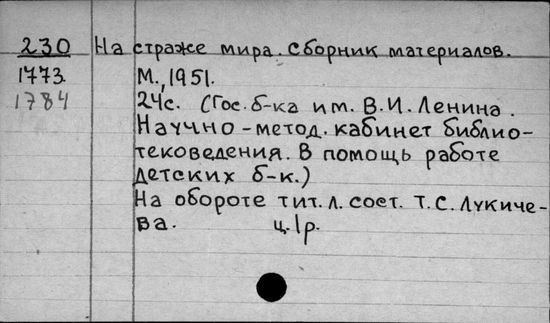 230 На страже мира. Сборник материалов.
1773 М., 1951.
1784 24с. (Гос. б-ка им. В.И. Ленина.
Научно-метод. кабинет библио-
тековедения. В помощь работе
детских б-к.)
На обороте тит. л. сост. Т.С. Лукиче-
ва. ц. 1р.